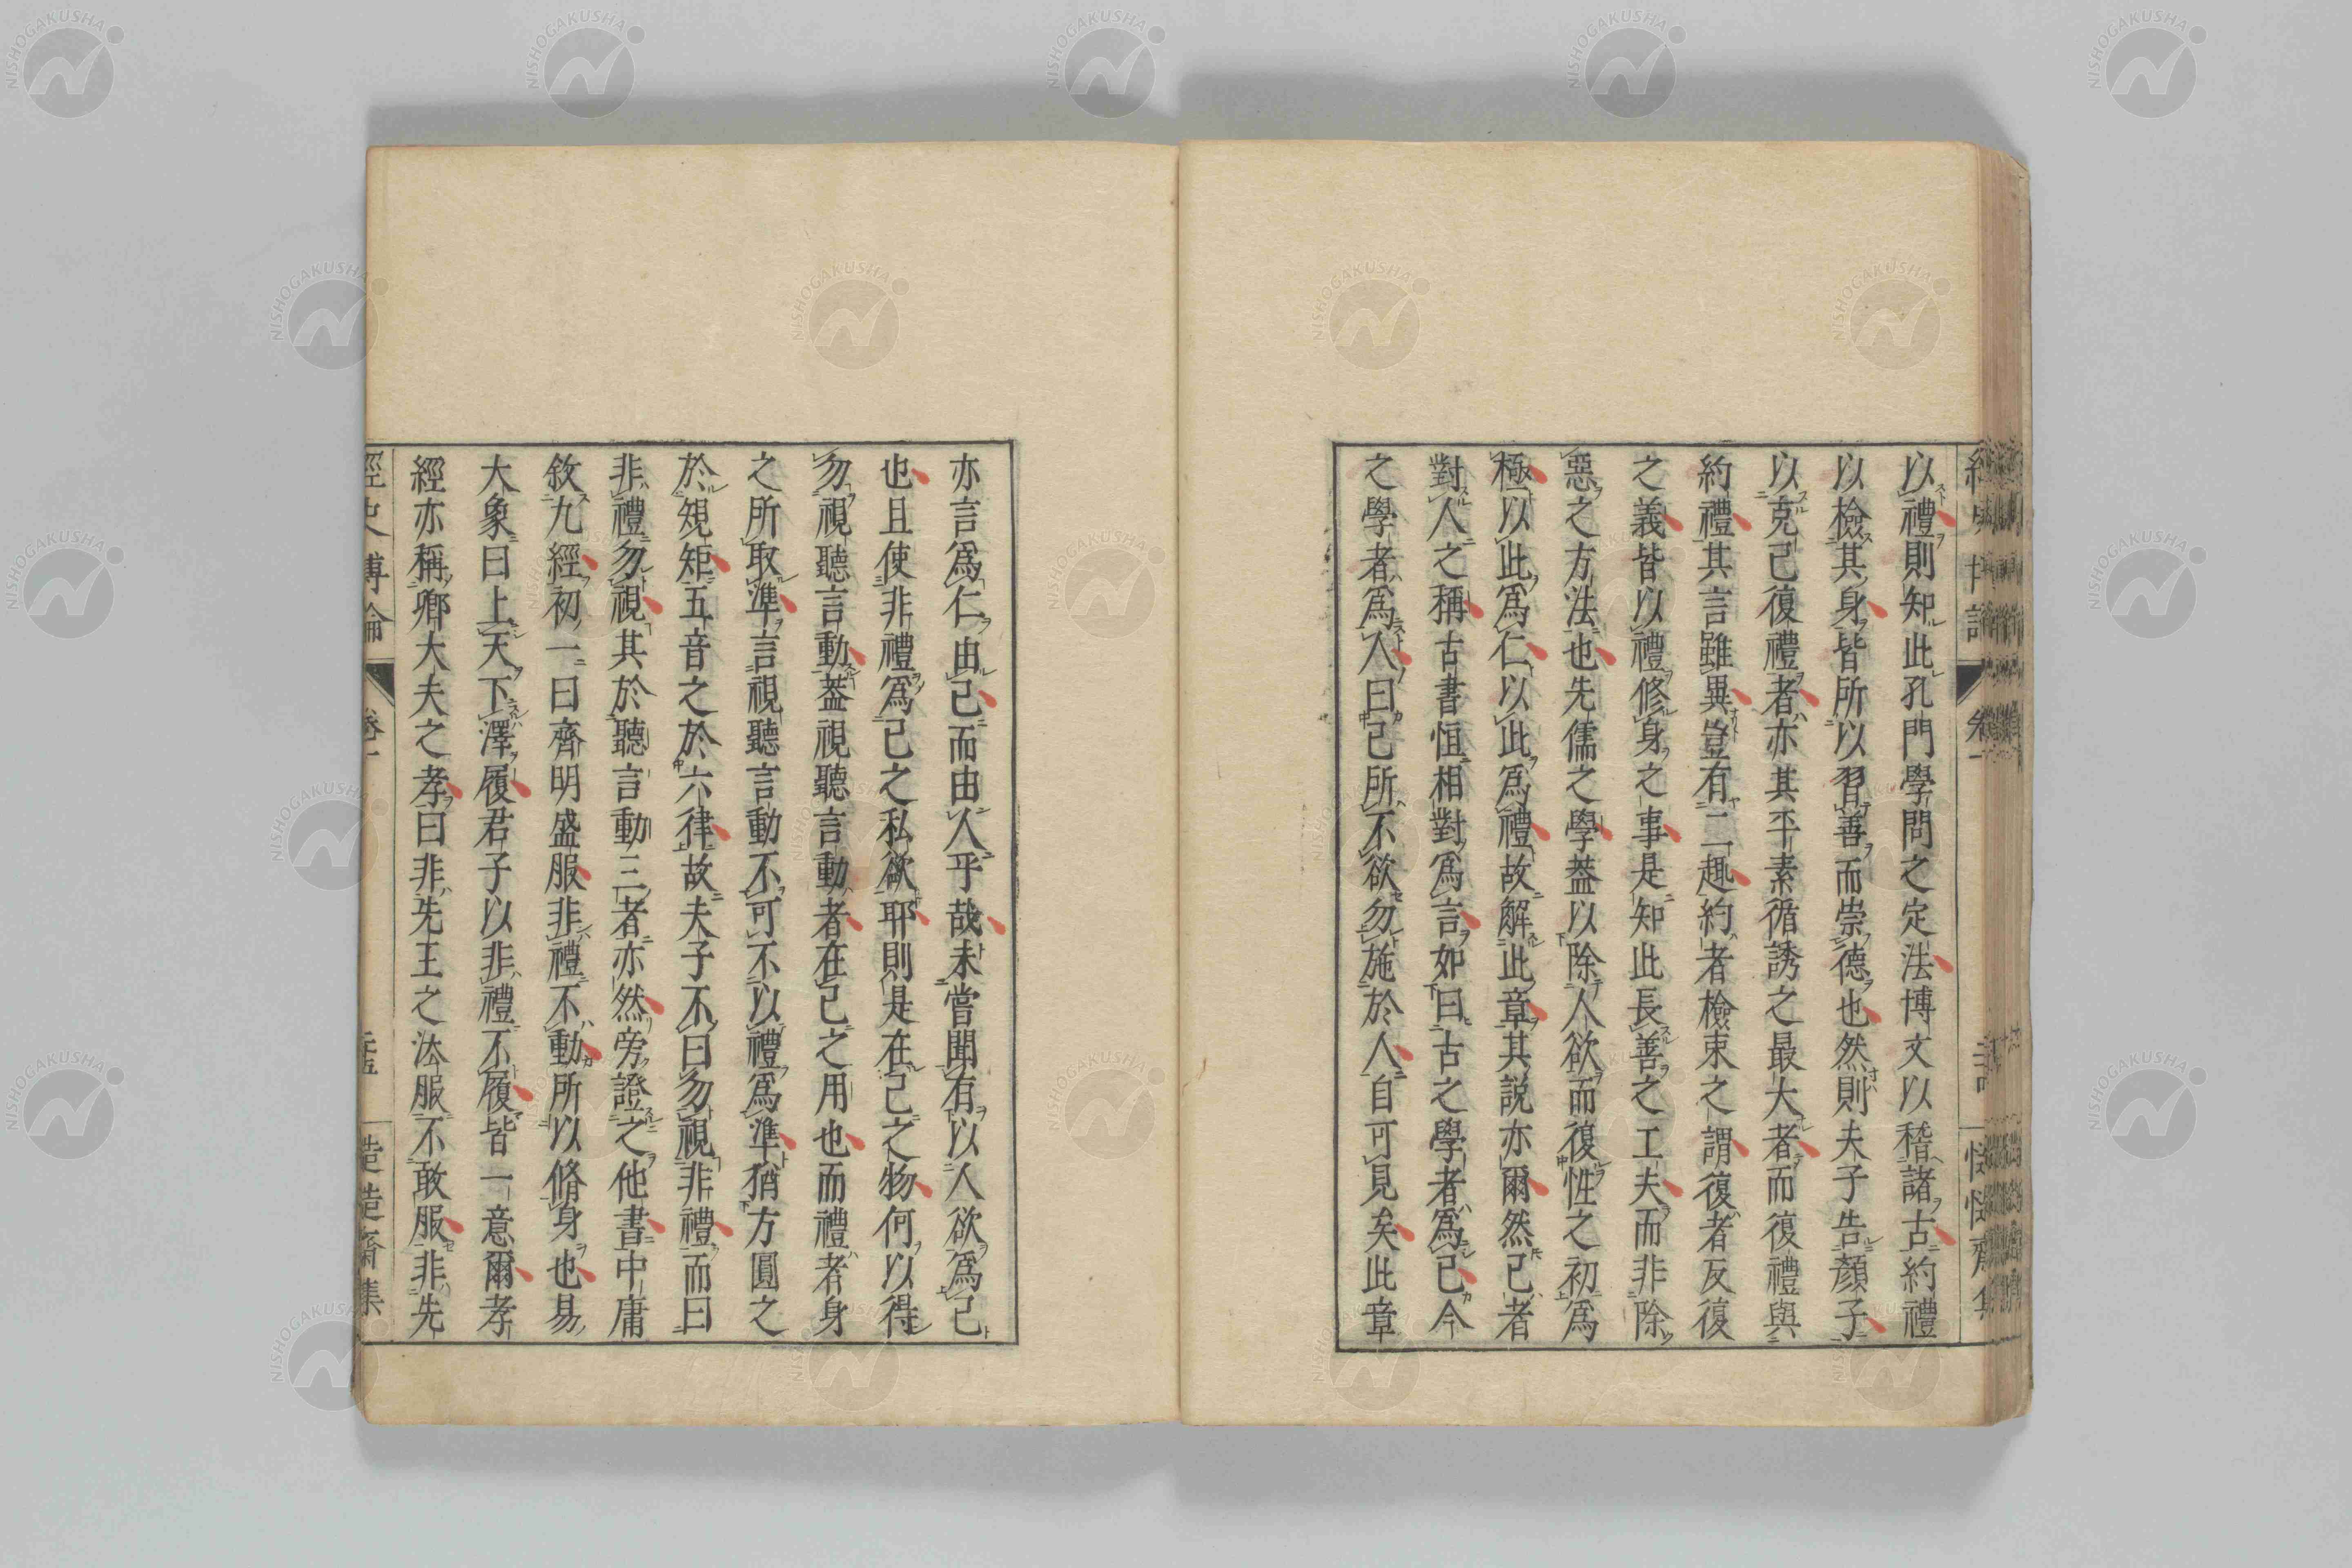 以禮則知此孔門學問之定法博文以稽諸古約禮
以檢其身皆所以習善而崇德也然則夫子告顏子
以克己復禮者亦其平素循誘之最大者而復禮與
約禮其言雖異豈有二趣約者檢束之謂復者反復
之義皆以禮修身之事是知此長善之工夫而非除
惡之方法也先儒之學蓋以除人欲而復性之初爲
極以此爲仁以此爲禮故解此章其說亦爾然己者
對人之稱古書恒相對爲言如曰古之學者爲己今
之學者爲人曰己所不欲勿施於人自可見矣此章
亦言爲仁由己而由人乎哉未嘗聞有以人欲爲己
也且使非禮爲己之私欲耶則是在己之物何以得
勿視聽言動蓋視聽言動者在己之用也而禮者身
之所取準言視聽言動不可不以禮爲準猶方圓之
於規矩五音之於六律故夫子不曰勿視非禮而曰
非禮勿視其於聽言動三者亦然旁證之他書中庸
敘九經初一曰齊明盛服非禮不動所以脩身也易
大象曰上天下澤履君子以非禮不履皆一意爾孝
經亦稱卿大夫之孝曰非先王之法服不敢服非先
經史博論
卷一
NISHOGAKUSHA